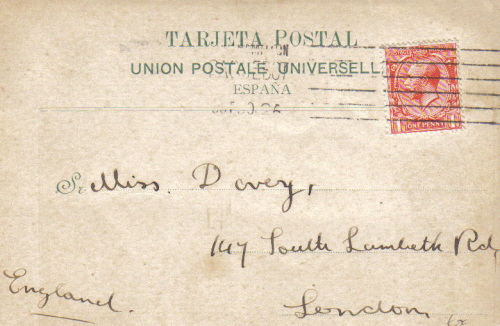 TARJETA POSTAL
UNION POSTALE UNIVERSELL
ESPAÑA
ONE PENNY
Sr. Miss. Dovey,
147 South Lambeth Rd,
England.
London